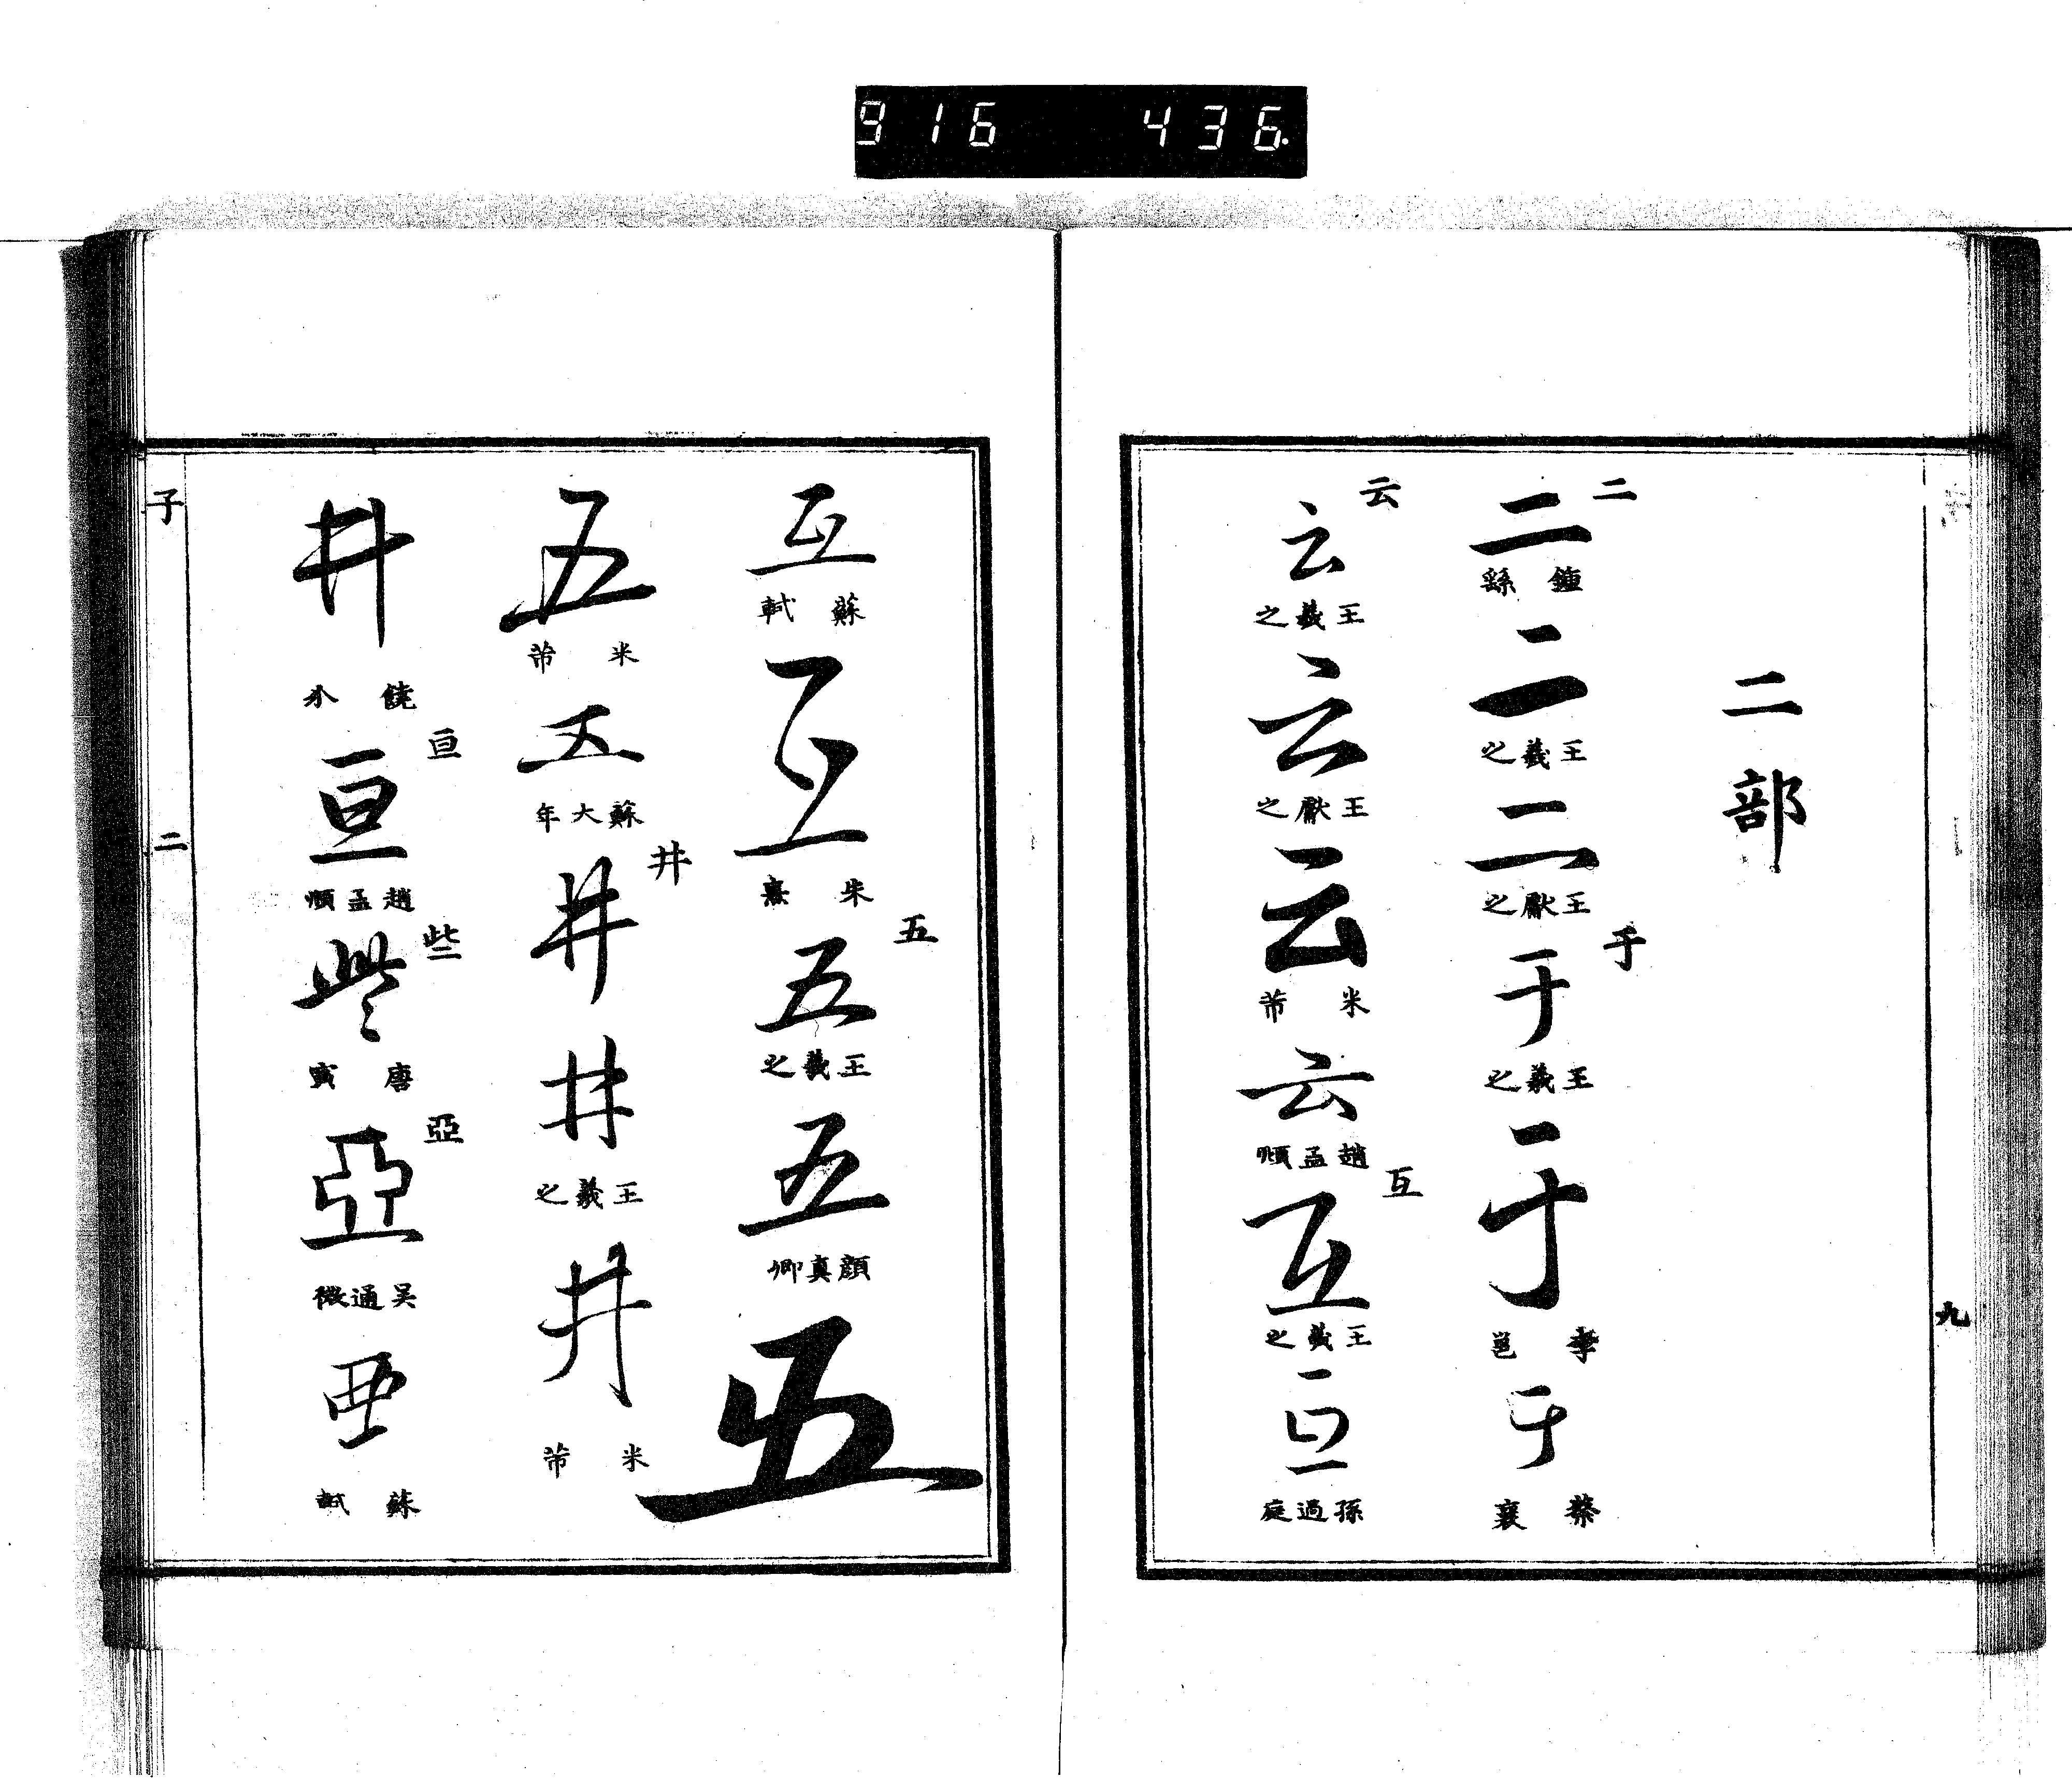 916 436.
九
二部
二
二
鍾繇
二
王羲之
二
王獻之
于
于
王羲之
于
李邕
于
蔡襄
云
云
王羲之
云
王獻之
云
米芾
云
趙孟頫
互
互
王羲之
互
孫過庭
互
蘇軾
互
朱熹
五
五
王羲之
五
顏真卿
五
五
米芾
五
蘇大年
井
井
井
王羲之
井
米芾
井
饒介
亘
亘
趙孟頫
些
些
唐寅
亞
亞
吴通微
亞
蘇軾
子
二